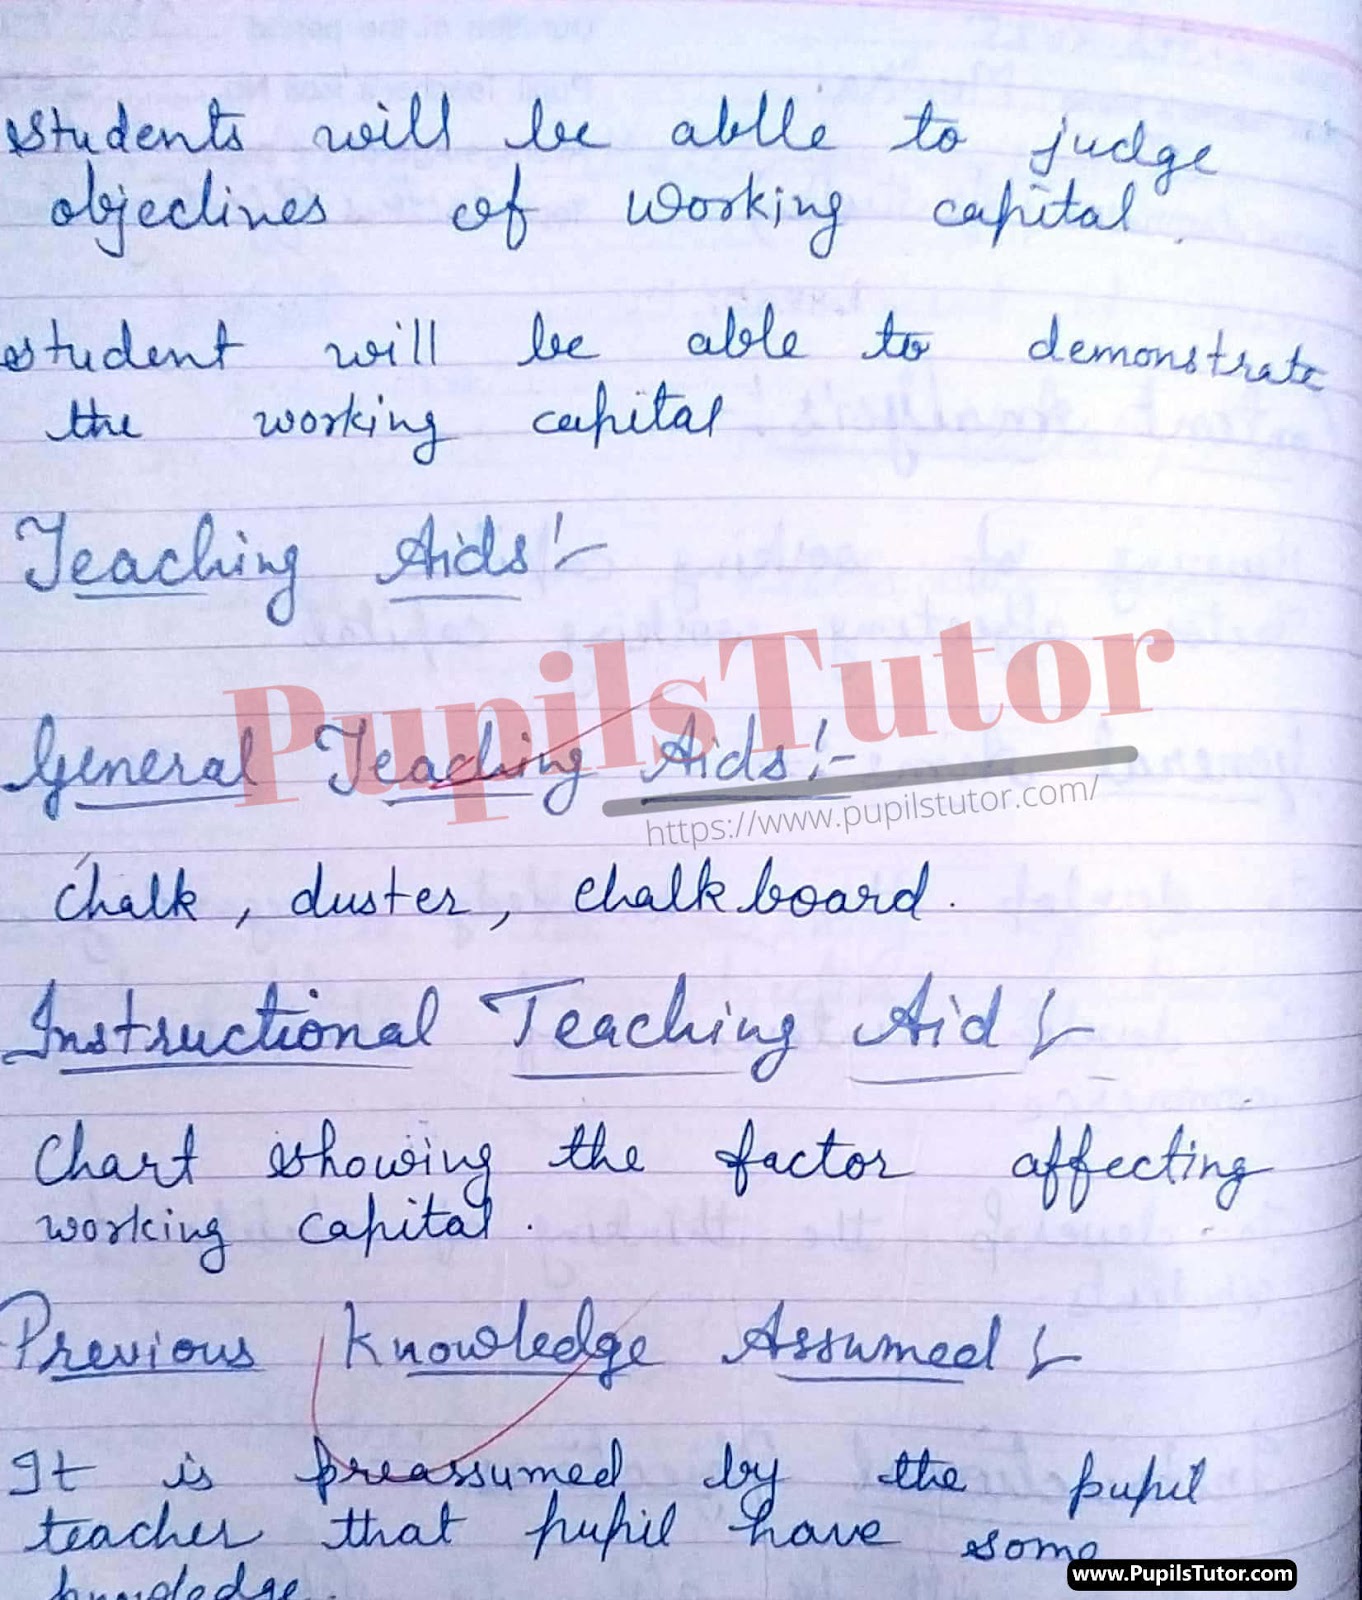 students will be ablle to judge
objeclines of working capital.
student will be able to demonstrate
the working capital
Teaching Aids:-
PupilsTutor
General Teaching Aids:-
https://www.pupilstutor.com/
Chalk, duster, chalk board.
Instructional Teaching Aid :-
Chart showing the factor affecting
working capital.
Previous Knowledge Assumed :-
It is preassumed by the pupil
teacher that pupil have some
knowledge.
www.PupilsTutor.com